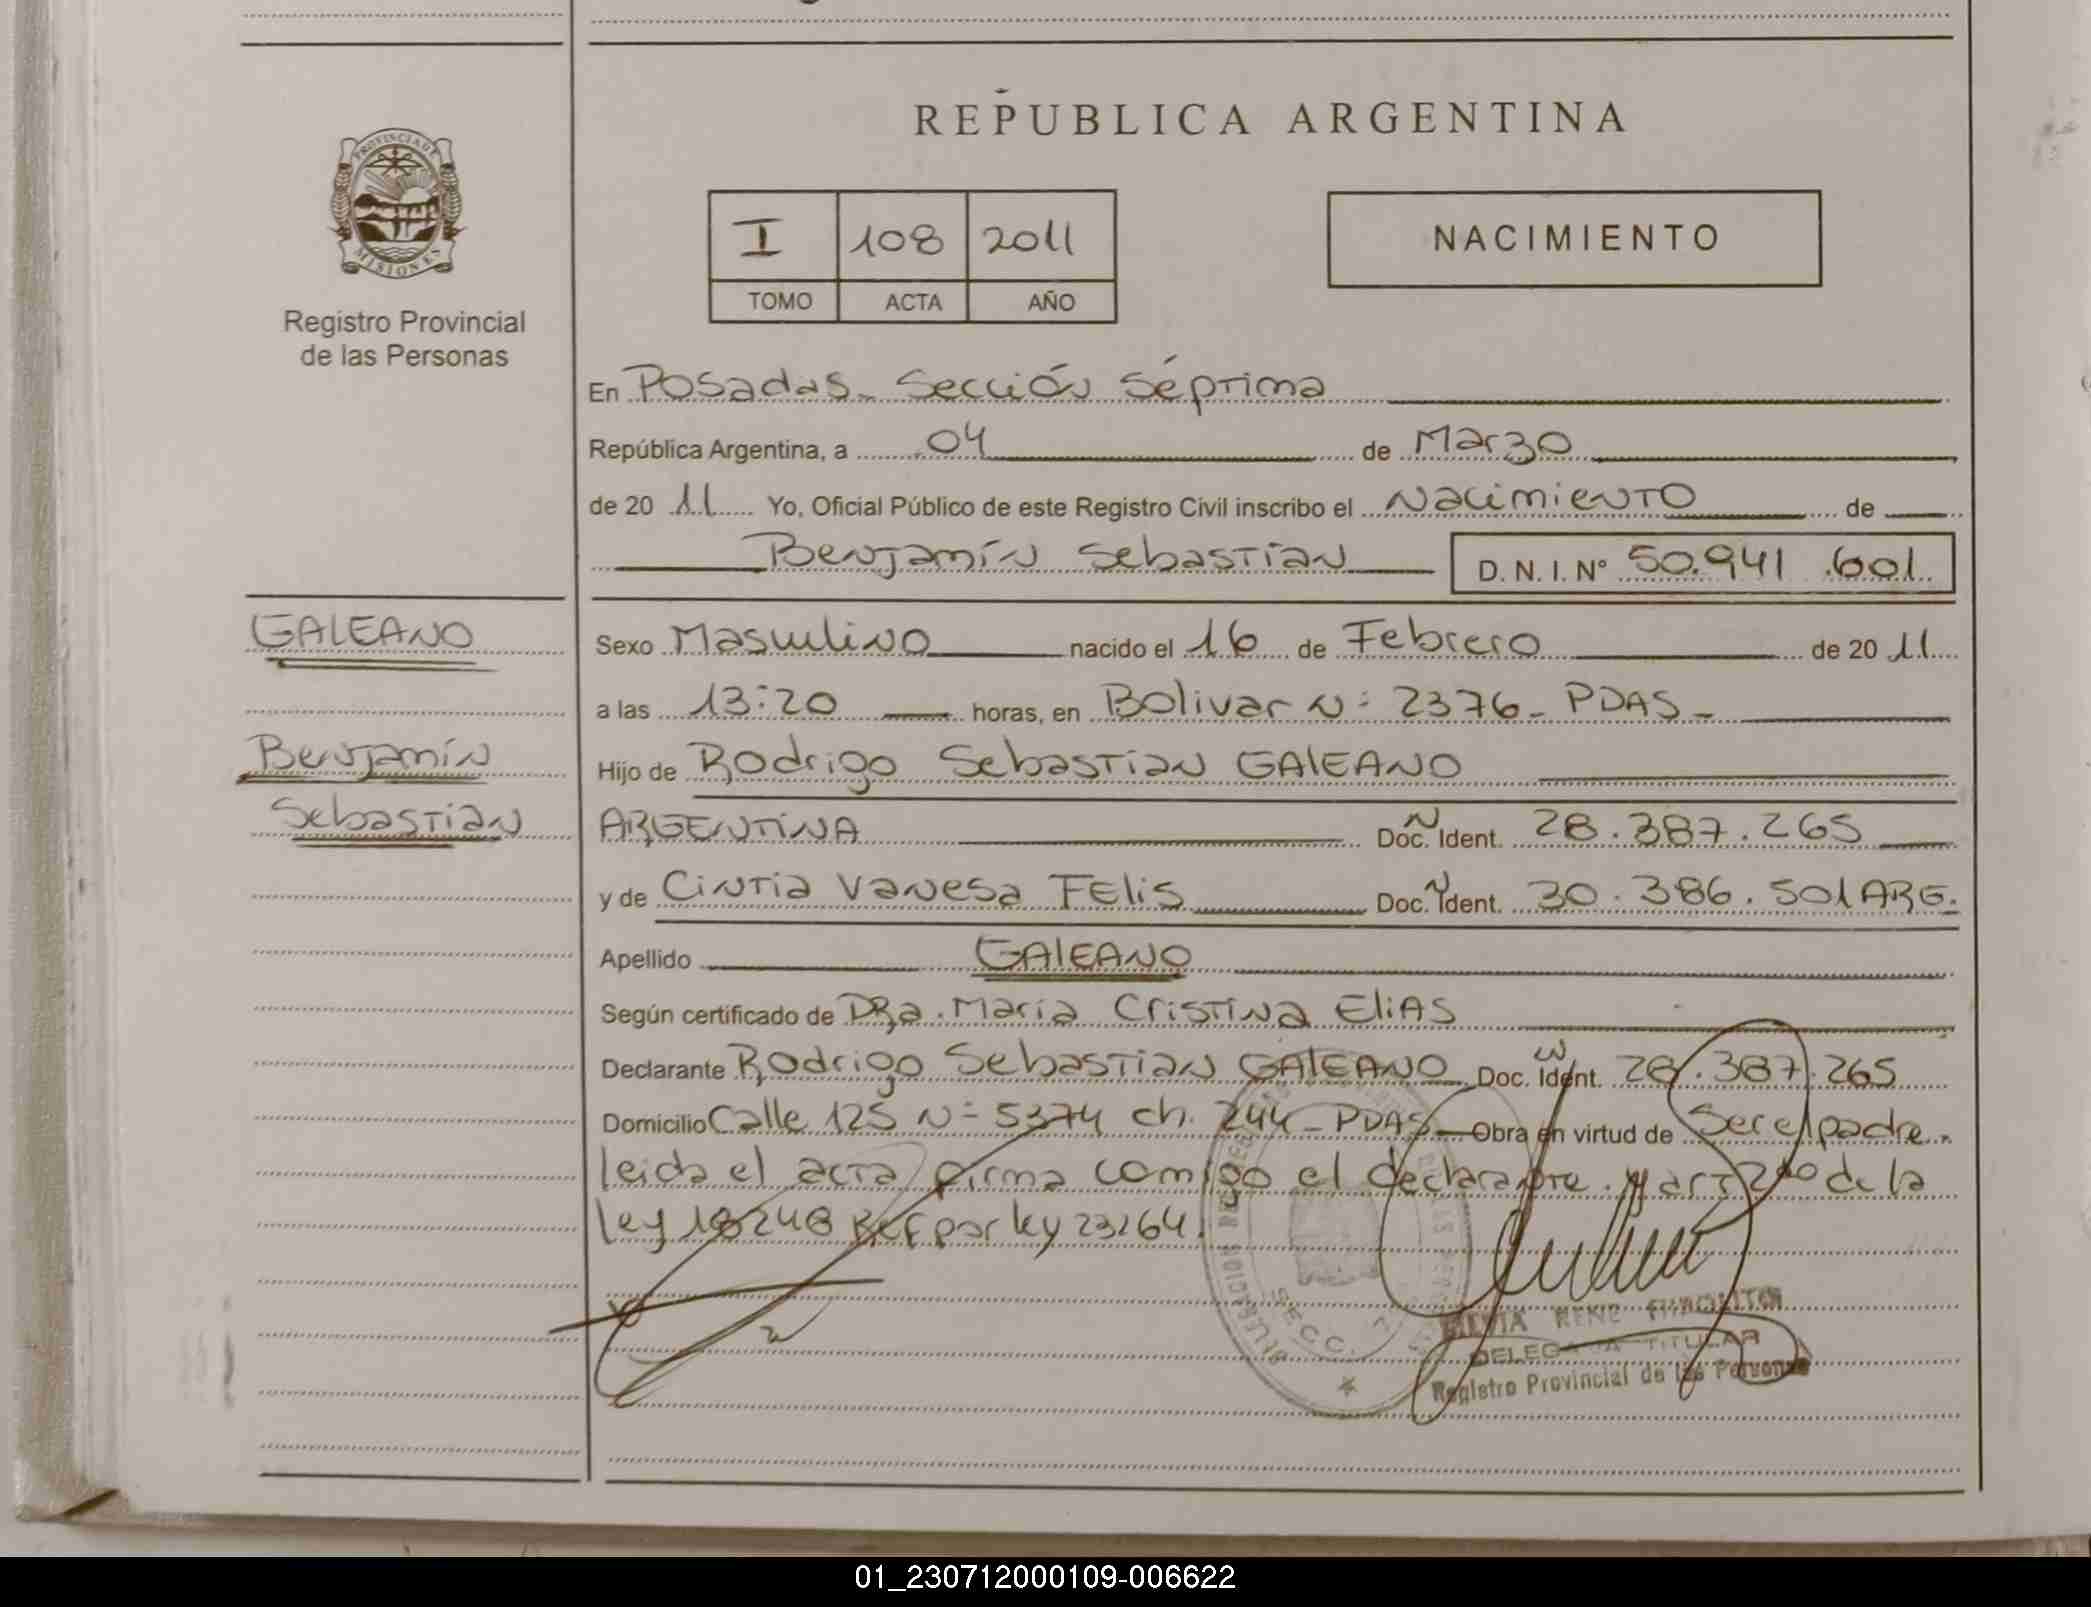 REPUBLICA ARGENTINA
PROVINCIA DE
MISIONES
Registro Provincial
de las Personas
I 108 2011
TOMO ACTA AÑO
NACIMIENTO
En Posadas - Sección Séptima
República Argentina, a 04 de Marzo
de 20 11 Yo, Oficial Público de este Registro Civil inscribo el Nacimiento de
Benjamín Sebastian D. N. I. N° 50.941.601
GALEANO
Benjamín
Sebastian
Sexo Masculino nacido el 16 de Febrero de 20 11
a las 13:20 horas, en Bolivar N: 2376 - PDAS -
Hijo de Rodrigo Sebastian GALEANO
ARGENTINA Doc. Ident. 28.387.265
y de Cintia Vanesa FELIS Doc. Ident. 30.386.501 ARG.
Apellido GALEANO
Según certificado de DRa. Maria Cristina ELIAS
Declarante Rodrigo Sebastian GALEANO Doc. Ident. 28.387.265
Domicilio Calle 125 N= 5374 ch. 244 - PDAS - Obra en virtud de Ser el padre.
leida el acta firma comigo el declarante. y art 2do de la
ley 18248 Ref por ley 23264.
SECC. 7
RENE
DELEGADA TITULAR
Registro Provincial de las Personas
01_230712000109-006622